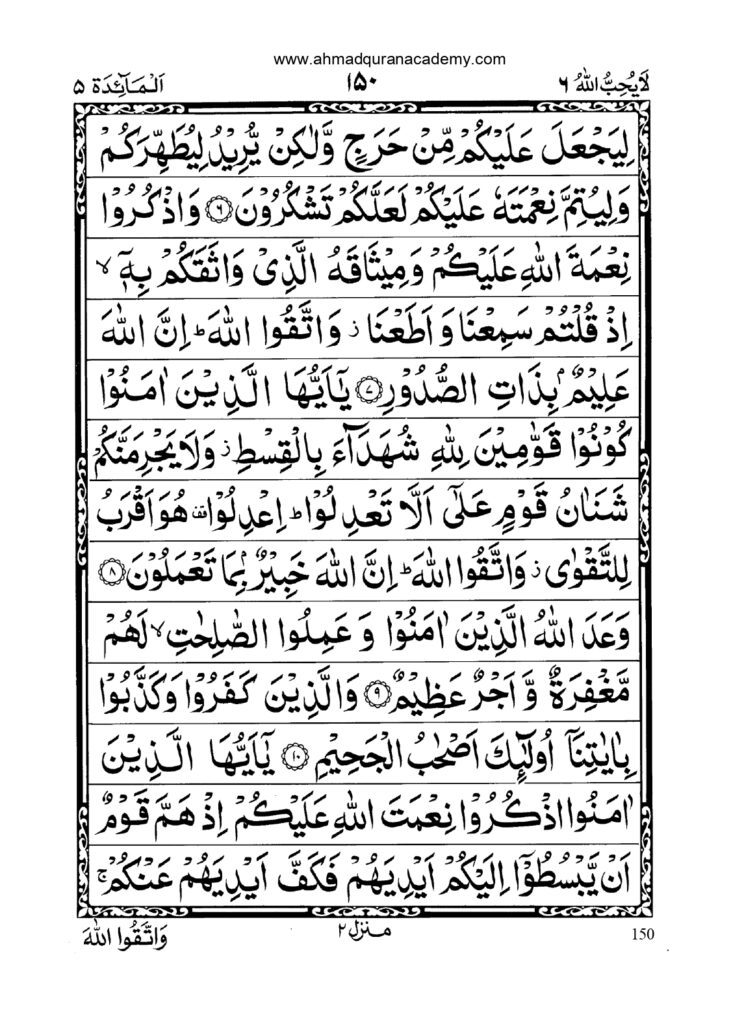 www.ahmadquranacademy.com
لَا يُحِبُّ اللهُ ٦ ١٥٠ اَلْمَآئِدَة ٥
لِيَجْعَلَ عَلَيْكُمْ مِّنْ حَرَجٍ وَّلٰكِنْ يُّرِيْدُ لِيُطَهِّرَكُمْ
وَلِيُتِمَّ نِعْمَتَهٗ عَلَيْكُمْ لَعَلَّكُمْ تَشْكُرُوْنَ ﴿٦﴾ وَاذْكُرُوْا
نِعْمَةَ اللهِ عَلَيْكُمْ وَمِيْثَاقَهُ الَّذِىْ وَاثَقَكُمْ بِهٖٓ ۙ
اِذْ قُلْتُمْ سَمِعْنَا وَاَطَعْنَا ز وَاتَّقُوا اللهَ ؕ اِنَّ اللهَ
عَلِيْمٌۢ بِذَاتِ الصُّدُوْرِ ﴿٧﴾ يٰٓاَيُّهَا الَّذِيْنَ اٰمَنُوْا
كُوْنُوْا قَوّٰمِيْنَ لِلّٰهِ شُهَدَآءَ بِالْقِسْطِ ز وَلَا يَجْرِمَنَّكُمْ
شَنَاٰنُ قَوْمٍ عَلٰٓى اَلَّا تَعْدِلُوْا ؕ اِعْدِلُوْا قف هُوَ اَقْرَبُ
لِلتَّقْوٰى ز وَاتَّقُوا اللهَ ؕ اِنَّ اللهَ خَبِيْرٌۢ بِمَا تَعْمَلُوْنَ ﴿٨﴾
وَعَدَ اللهُ الَّذِيْنَ اٰمَنُوْا وَ عَمِلُوا الصّٰلِحٰتِ ۙ لَهُمْ
مَّغْفِرَةٌ وَّ اَجْرٌ عَظِيْمٌ ﴿٩﴾ وَالَّذِيْنَ كَفَرُوْا وَكَذَّبُوْا
بِاٰيٰتِنَآ اُولٰٓئِكَ اَصْحٰبُ الْجَحِيْمِ ﴿١٠﴾ يٰٓاَيُّهَا الَّذِيْنَ
اٰمَنُوا اذْكُرُوْا نِعْمَتَ اللهِ عَلَيْكُمْ اِذْ هَمَّ قَوْمٌ
اَنْ يَّبْسُطُوْٓا اِلَيْكُمْ اَيْدِيَهُمْ فَكَفَّ اَيْدِيَهُمْ عَنْكُمْ ۚ
وَاتَّقُوا اللهَ منزل ٢ 150